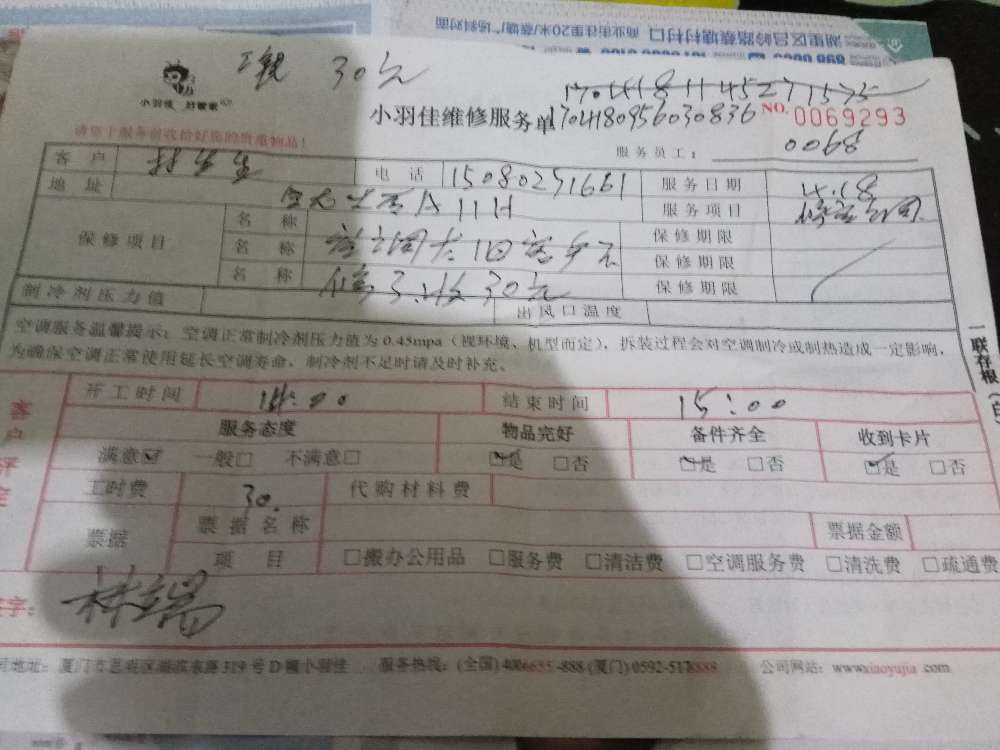 30元
17041811452711575
小羽佳 好管家
小羽佳维修服务单 170418095603083​6 NO. 0069293
请您于服务前收拾好您的贵重物品！
服务员工： 0068
客户 电话 15080251661 服务日期 4.18
地址 A 11H 服务项目
保修项目 名称 保修期限
名称 保修期限
名称 修 30元 保修期限
制冷剂压力值 出风口温度
空调服务温馨提示：空调正常制冷剂压力值为 0.45mpa（视环境、机型而定），拆装过程会对空调制冷或制热造成一定影响，
为确保空调正常使用延长空调寿命，制冷剂不足时请及时补充。
一联存根（白
客户评定
开工时间 14:00 结束时间 15:00
服务态度 物品完好 备件齐全 收到卡片
满意☑ 一般□ 不满意□ ☑是 □否 ☑是 □否 ☑是 □否
工时费 30. 代购材料费
票据 票据名称 票据金额
项目 □搬办公用品 □服务费 □清洁费 □空调服务费 □清洗费 □疏通费
字： 林瑞
司地址：厦门市思明区湖滨东路 319 号 D 幢小羽佳 服务热线：(全国) 4006655-888 (厦门) 0592-5178888 公司网站：www.xiaoyujia.com